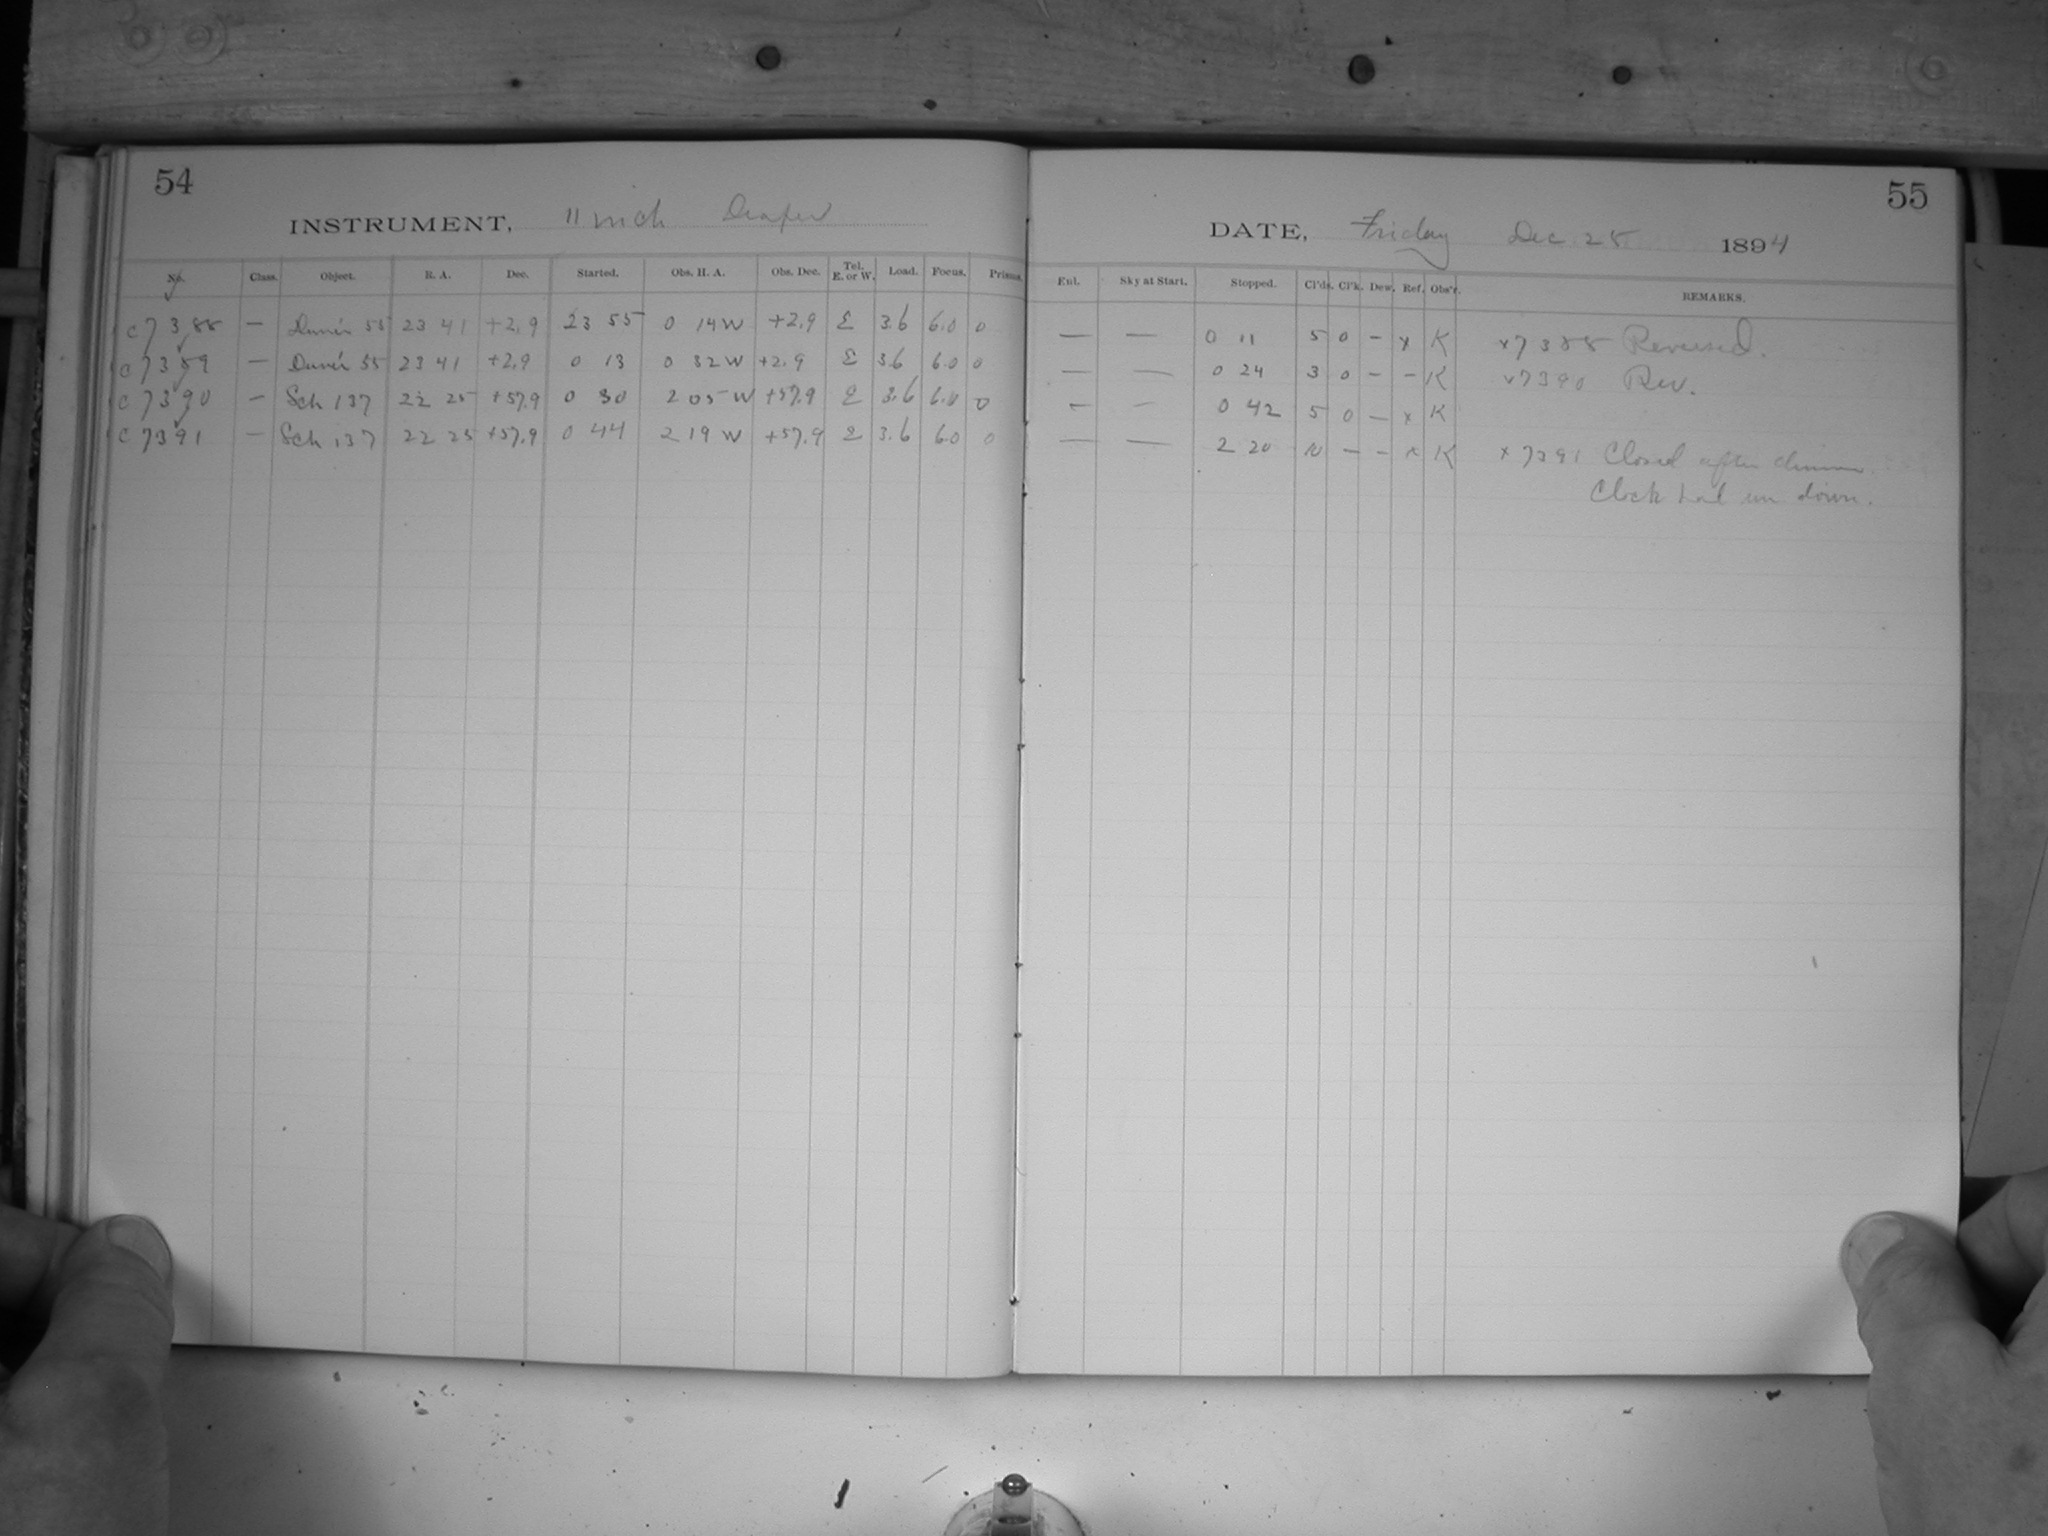 54
INSTRUMENT, 11 inch Draper
No. Class. Object. R. A. Dec. Started. Obs. H. A. Obs. Dec. Tel. E. or W. Load. Focus. Prisms.
c 7388 — Dunér 55 23 41 +2.9 23 55 0 14 W +2.9 E 3.6 6.0 0
c 7389 — Dunér 55 23 41 +2.9 0 13 0 32 W +2.9 E 3.6 6.0 0
c 7390 — Sch 137 22 25 +57.9 0 30 2 05 W +57.9 E 3.6 6.0 0
c 7391 — Sch 137 22 25 +57.9 0 44 2 19 W +57.9 E 3.6 6.0 0
55
DATE, Friday Dec. 28 1894
Ext. Sky at Start. Stopped. Cl'ds. Cl'k. Dew. Ref. Obs'r. REMARKS.
— — 0 11 5 0 – x K x7388 Reversed.
— — 0 24 3 0 – – K x7390 Rev.
– – 0 42 5 0 – x K
— — 2 20 – – x K x 7391 Closed after dinner.
Clock had run down.